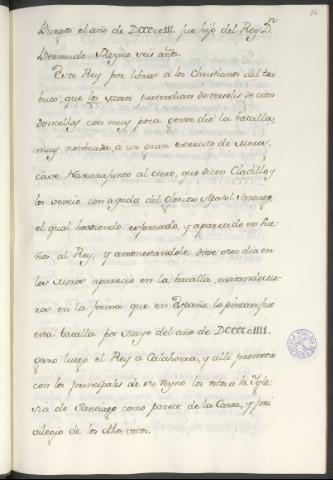 36
Burgos el año de DCCCCIII. fue hijo del Rey Dn
Bermudo. Reyno seis años.
Este Rey por librar a los Christianos del tri
buto, que los Moros pretendian de tenerles de cien
doncellas con muy poca gente dio la batalla,
muy nombrada, a un gran exercito de Moros,
cave Naxara junto al cerro, que dicen Cladillo y
los vencio con ayuda del glorioso Apostol Santiago
el qual haviendo esforzado, y aparecido en sue
ños al Rey, y amonestandole, diese otro dia en
los Moros aparecio en la batalla, matando Mo
ros en la forma que en España lo pintan, fue
esta batalla por Mayo del año de DCCCCIIII.
gano luego el Rey a Calahorra, y alli prometio
con los principales de su Reyno los votos a la Igle
sia de Santiago como parece de la Carta, y pri
vilegio de los dhos votos.